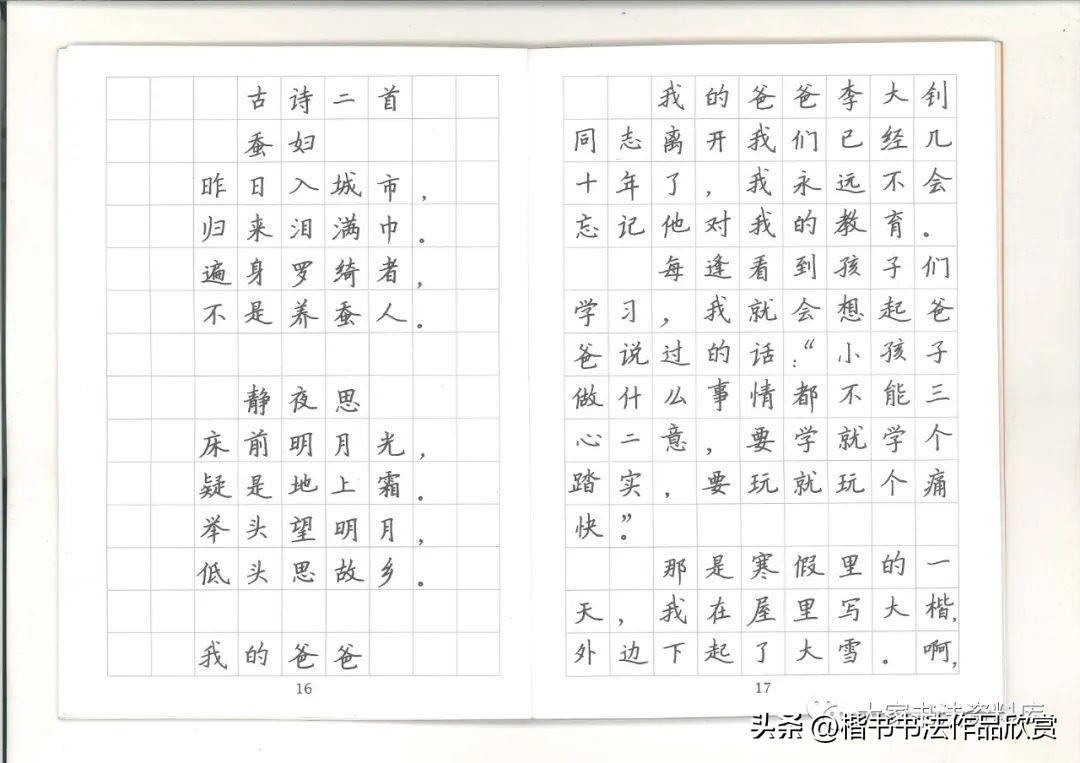 古诗二首
蚕妇
昨日入城市，
归来泪满巾。
遍身罗绮者，
不是养蚕人。
静夜思
床前明月光，
疑是地上霜。
举头望明月，
低头思故乡。
我的爸爸
16
我的爸爸李大钊
同志离开我们已经几
十年了，我永远不会
忘记他对我的教育。
每逢看到孩子们
学习，我就会想起爸
爸说过的话：“小孩子
做什么事情都不能三
心二意，要学就学个
踏实，要玩就玩个痛
快。”
那是寒假里的一
天，我在屋里写大楷，
外边下起了大雪。啊，
17
大家书法资料库
头条 @楷书书法作品欣赏